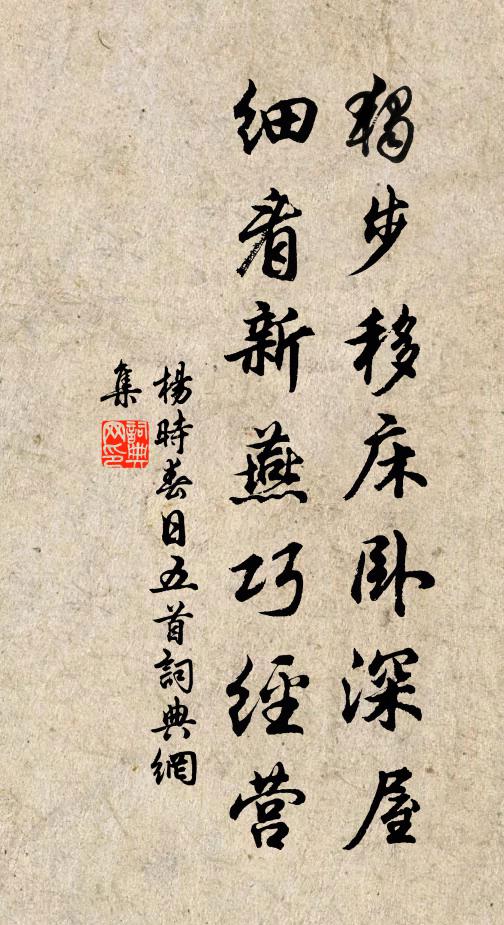 獨步移床卧深屋
细看新燕巧經营
楊時春日五首詞典網
集
詞典
网印